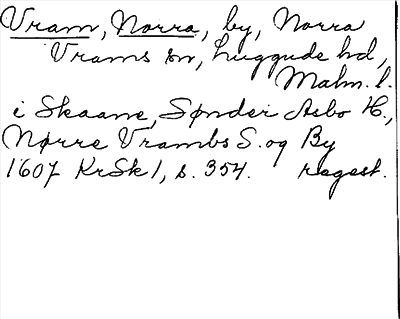 Vram, Norra, by, Norra
Vrams sn, Luggude hd,
Malm. l.
i Skaane, Sønder Asbo H.,
Nørre Vrambs S. og By
1607 KrSk 1, s. 354. regest.